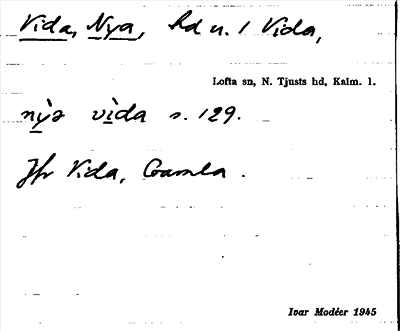 Vida, Nya, hd u. 1 Vida,
Lofta sn, N. Tjusts hd, Kalm. l.
nỳa vìda s. 129.
Jfr Vida, Gamla.
Ivar Modéer 1945